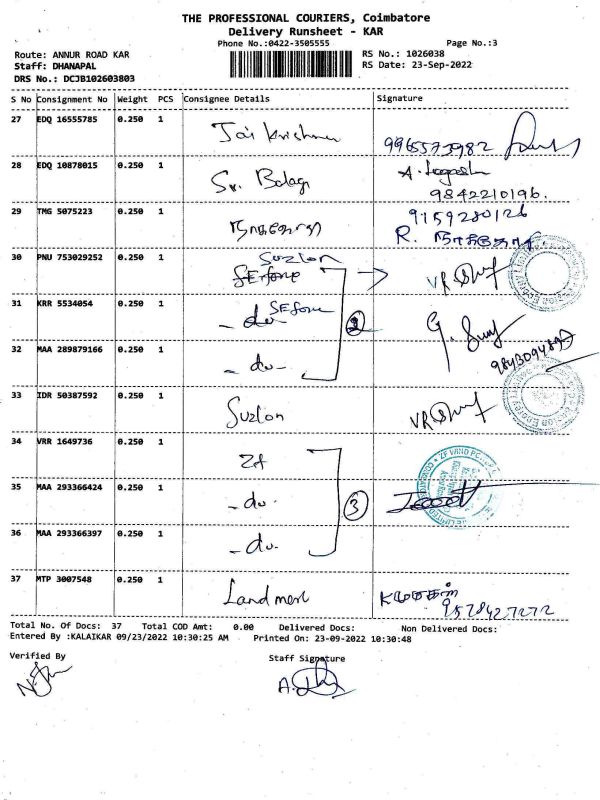 THE PROFESSIONAL COURIERS, Coimbatore
Delivery Runsheet - KAR
Phone No.:0422-3505555
Page No.:3
Route: ANNUR ROAD KAR
RS No.: 1026038
Staff: DHANAPAL
RS Date: 23-Sep-2022
DRS No.: DCJB102603803
S No Consignment No Weight PCS Consignee Details Signature
27 EDQ 16555785 0.250 1 Jai Krishna 9965573982
28 EDQ 10878015 0.250 1 Sri Balaji
9842210196.
29 TMG 5075223 0.250 1 9159280126
R.
Suzlon
30 PNU 753029252 0.250 1 SEforge VR
31 KRR 5534054 0.250 1 - do - SEforge 2
32 MAA 289879166 0.250 1 - do -
33 IDR 50387592 0.250 1 Suzlon VR
34 VRR 1649736 0.250 1 ZF
35 MAA 293366424 0.250 1 - do - 3
36 MAA 293366397 0.250 1 - do -
37 MTP 3007548 0.250 1 Landmark
9578427272
Total No. Of Docs: 37 Total COD Amt: 0.00 Delivered Docs: Non Delivered Docs:
Entered By :KALAIKAR 09/23/2022 10:30:25 AM Printed On: 23-09-2022 10:30:48
Verified By Staff Signature